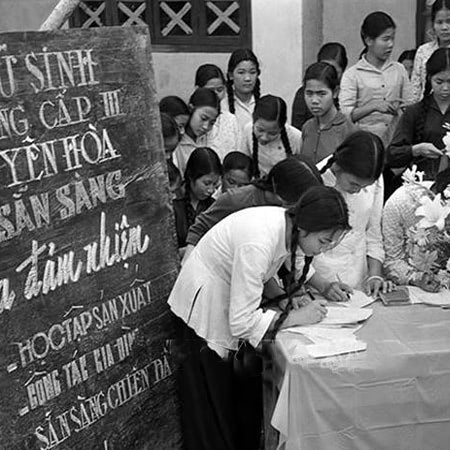 Ữ SINH
NG CẤP III
YÊN HÒA
SẴN SÀNG
a đảm nhiệm
_HỌC TẬP SẢN XUẤT
_CÔNG TÁC GIA ĐÌN
SẴN SÀNG CHIẾN ĐẤ